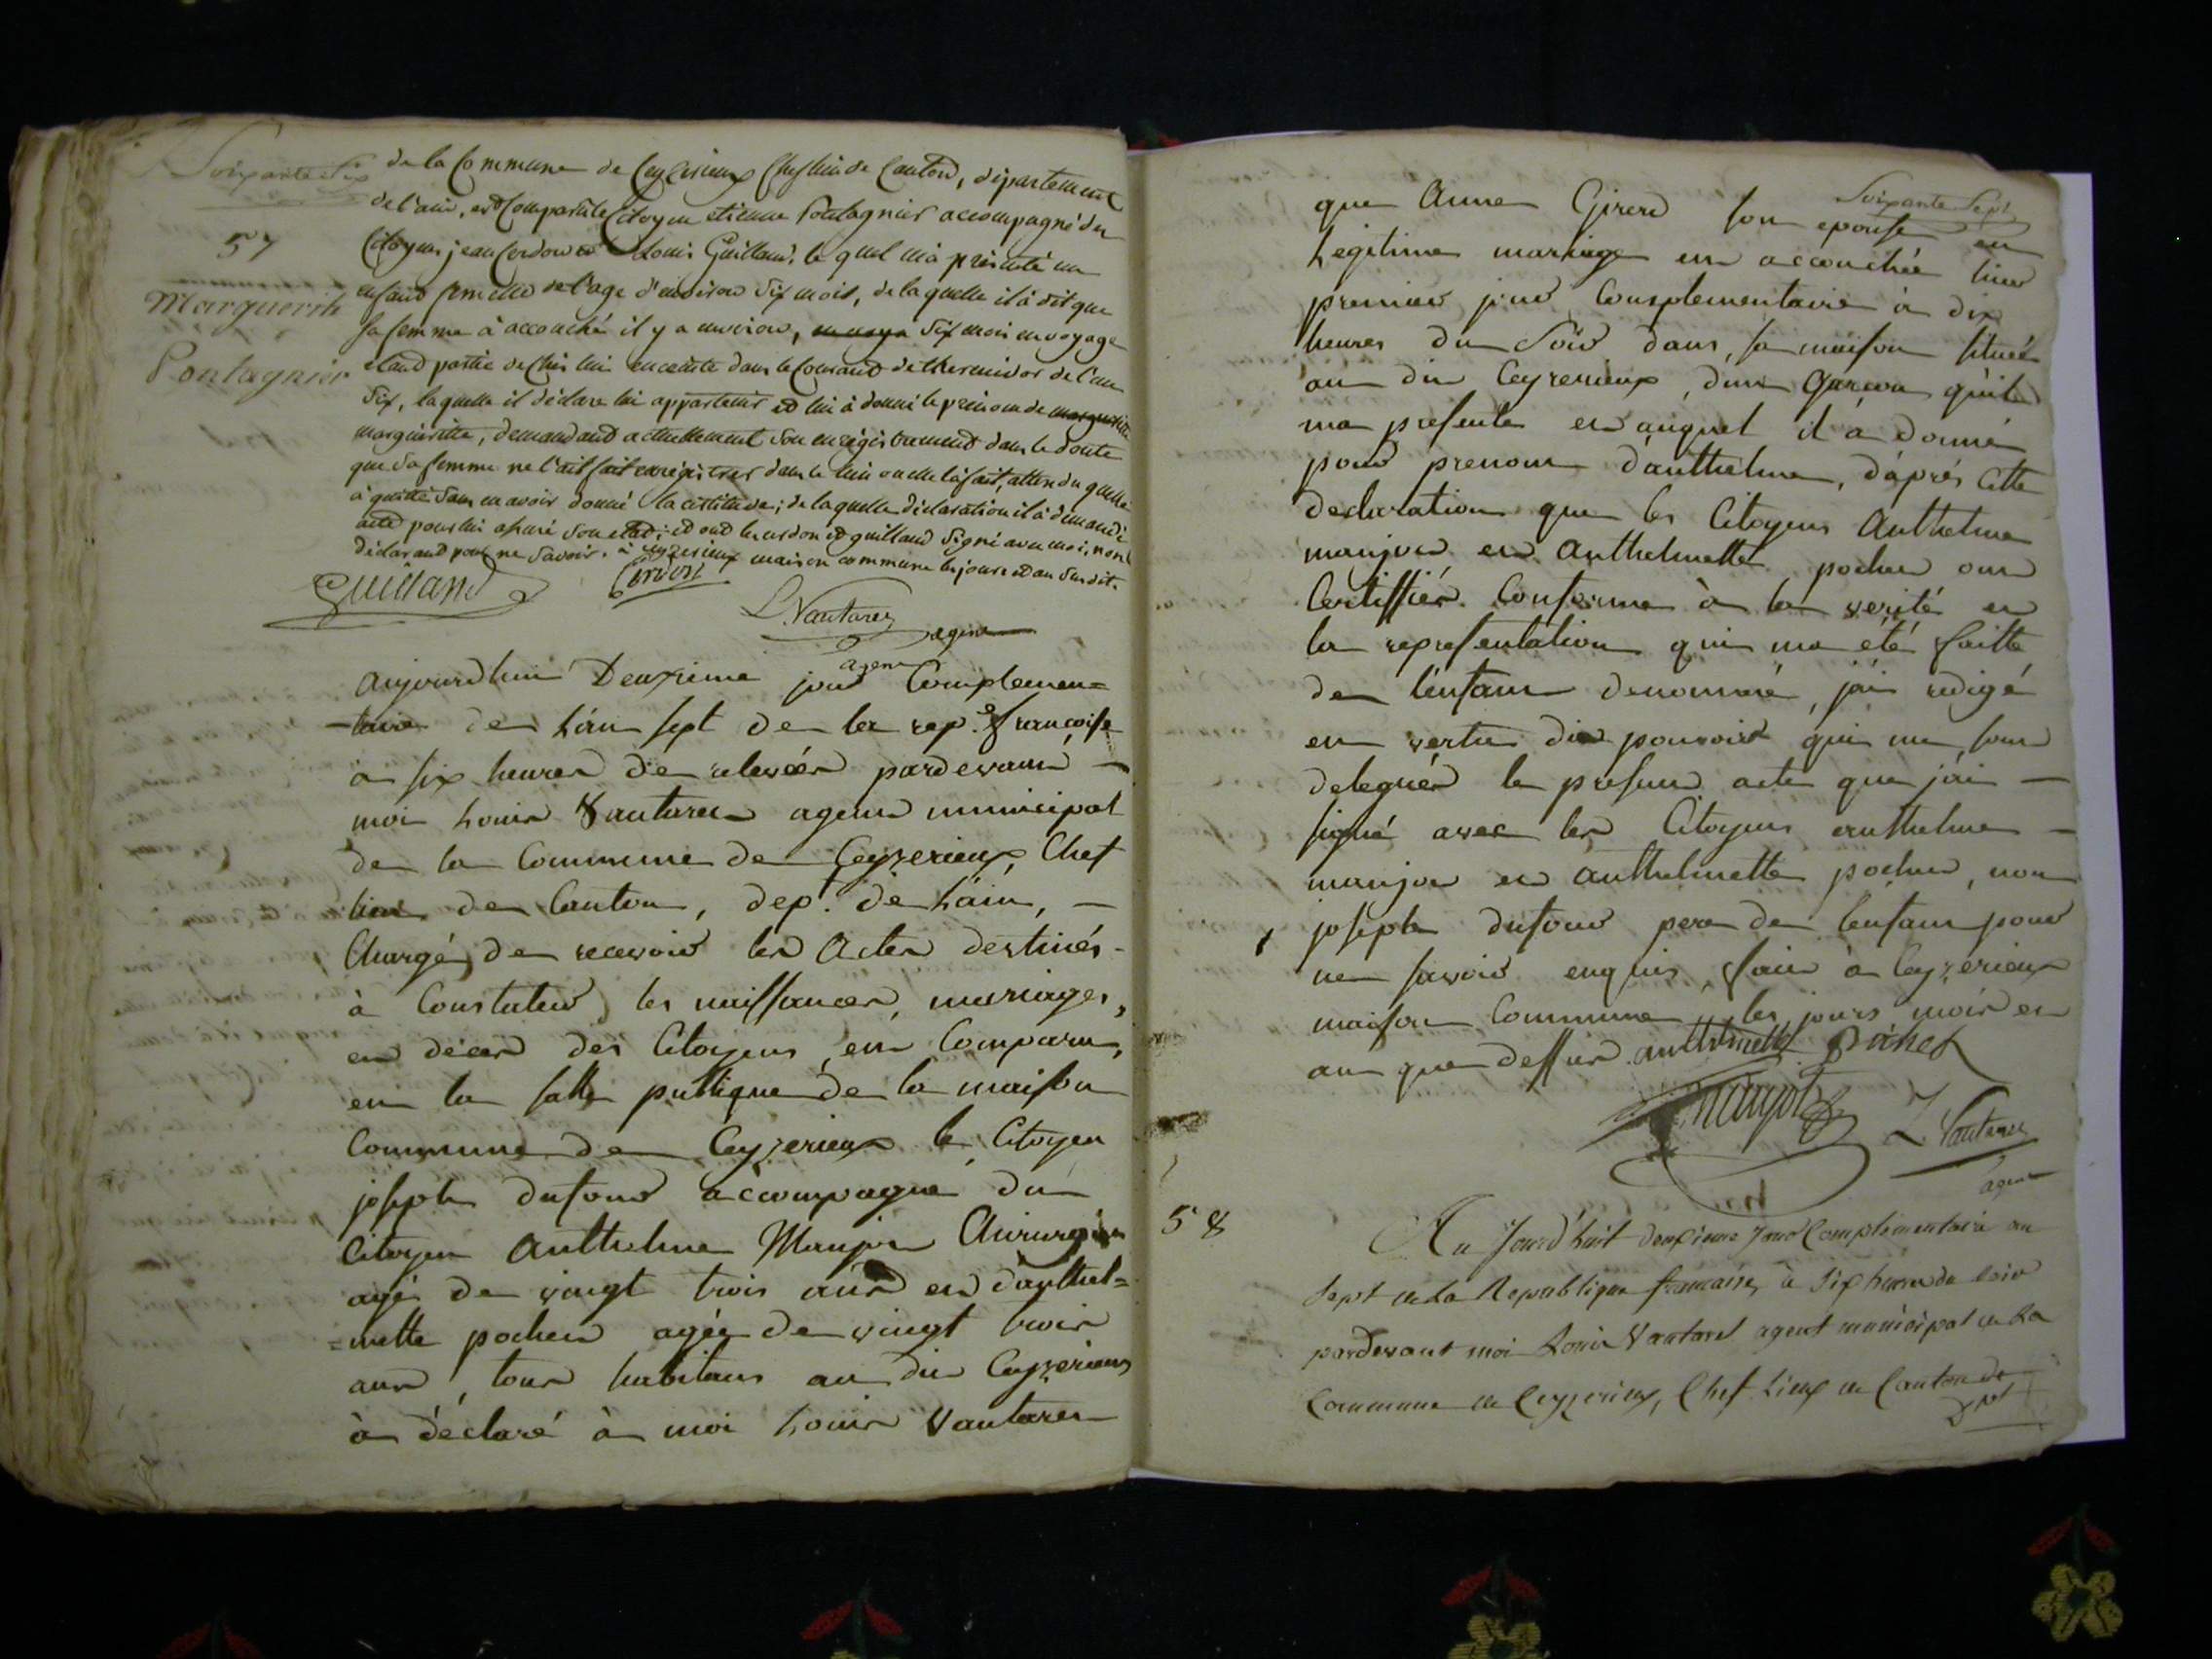 Soixante Six
57
Marguerite
Pontagnier
de la Commune de Ceyzerieux Cheflieu de Canton, département
de l'ain, est Comparu le Citoyen etienne Pontagnier accompagné des
Citoyens jean Cerdon et Louis Guilland, le quel m'a présenté un
enfand femelle de l'age d'environ Six mois, de laquelle il à dit que
sa femme à accouché il y a environ, Six mois en voyage
etand partie de Chés lui enceinte dans le Courand de thermidor de l'an
Six, laquelle il déclare lui appartenir et lui à donné le prénom de
marguerite, demandand actuellement son enrégistrement dans le doute
que sa femme ne l'ait fait enrégistrer dans le lieu ou elle l'a fait, attendu quelle
à quitté sans en avoir donné la certitude; de laquelle déclaration il à demandé
acte pour lui assuré son etad; et ond les cerdon et guilland Signé avec moi, non le
déclarand pour ne savoir. à ceyzerieux maison commune les jours et an susdit.
Guilland Cerdon
L. Vantaret
agent
agent
aujourdhui Deuxieme jour Complemen=
-taire de L'an sept de la rep.e françoise
a six heures de relevées pardevant
moi Louis Vantaret agent municipal
de la Commune de Ceyzerieux, Chef
lieu de Canton, dep.t de L'ain,
Chargé de recevoir les Actes destinés
à Constater les naissances, mariages,
et décès des Citoyens, est Comparu,
en la salle publique de la maison
Commune de Ceyzerieux le Citoyen
joseph dufour accompagné du
Citoyen Anthelme Manjot Chirurgien
agé de vingt trois ans et d'anthel=
=mette pochet agée de vingt trois
ans, tous habitans au dit Ceyzerieux
à déclaré à moi Louis Vantaret
Soixante Sept
que Anne Girerd son epouse en
Legitime mariage est accouchée hier
premier jour Complementaire à dix
heures du Soir dans, sa maison située
au dit Ceyzerieux, d'un Garçon qu'il
ma presenté et auquel il à donné
pour prenom d'anthelme, d'après Cette
declaration que les Citoyens Anthelme
manjot et Anthelmette pochet ont
Certiffiér Conforme à la verité et
la representation qui ma été faitte
de l'enfant denommé, j'ai redigé
en vertu des pouvoirs qui me sont
delegués le present acte que j'ai
signé avec les Citoyens anthelme
manjot et Anthelmette pochet, non
joseph dufour pere de l'enfant pour
ne savoir enquis, fait à Ceyzérieux
maison Commune les jours mois et
an que dessus. anthelmette Pochet
Manjot L. Vantaret
agent
58
Au Jourd'huit deuxieme Jour Complémentaire an
sept de La Republique francaise, à Six heures du soir
pardevant moi Louis Vantaret agent municipal de La
Commune de Ceyzerieux, Chef Lieux de Canton de
Dpt